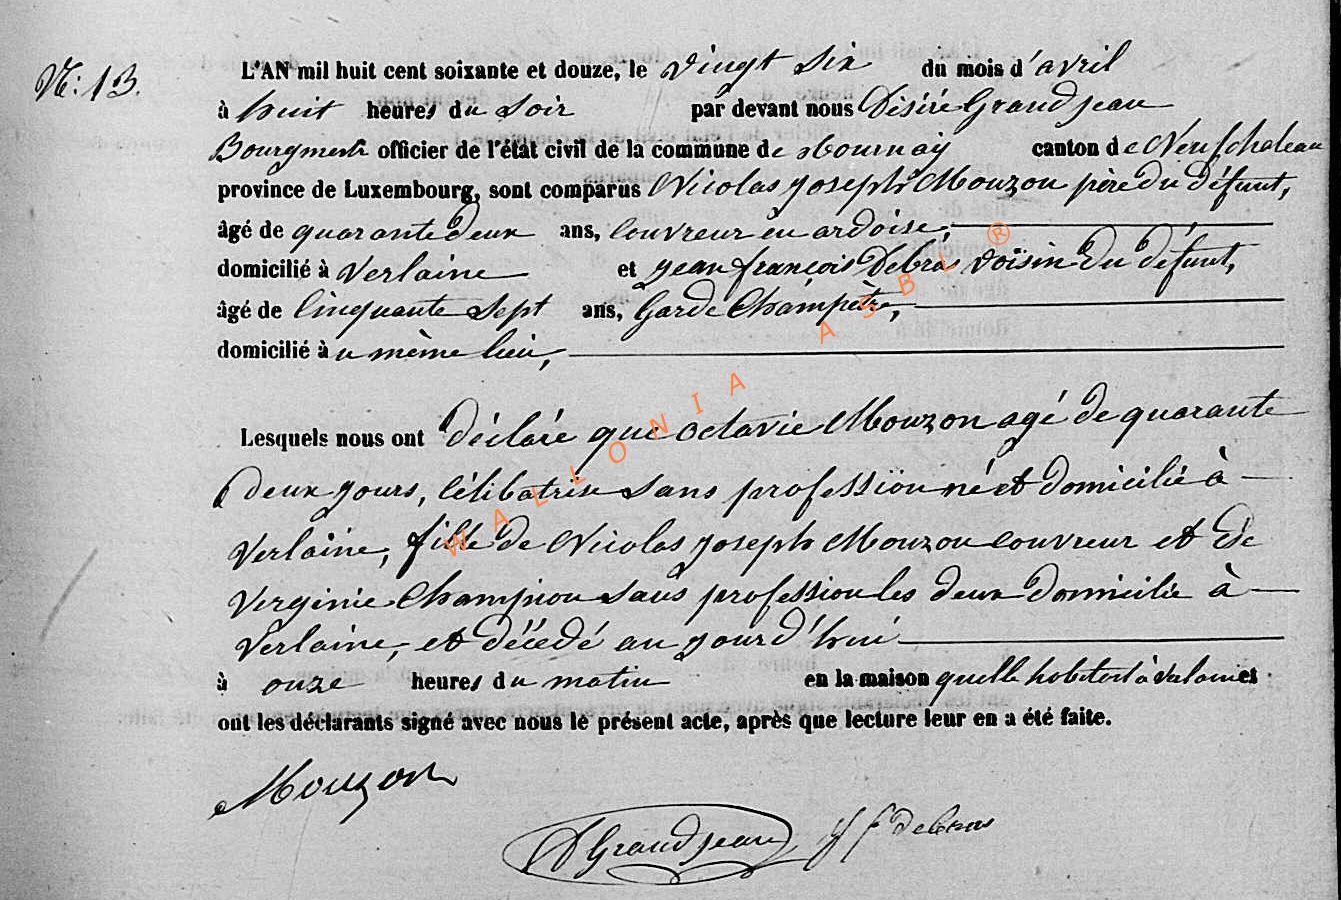 N: 13.
L'AN mil huit cent soixante et douze, le vingt six du mois d'avril
à huit heures du soir par devant nous Désiré Grandjean
Bourgmestre officier de l'état civil de la commune de Tournay canton de Neufchateau
province de Luxembourg, sont comparus Nicolas Joseph Mouzon père du défunt,
âgé de quarante deux ans, couvreur en ardoise,
domicilié à Verlaine et jean françois Debras voisin du défunt,
âgé de cinquante sept ans, Garde Champètre,
domicilié à u mème lieu,
Lesquels nous ont déclaré que octavie Mouzon agé de quarante
deux jours, célibatrise sans profession né et domicilié à
Verlaine, fille de Nicolas joseph Mouzon couvreur et de
Verginie Champion sans profession les deux domicilié à
Verlaine, et décédé au jourd'hui
à onze heures du matin en la maison quelle habitait à Verlaine et
ont les déclarants signé avec nous le présent acte, après que lecture leur en a été faite.
Mouzon
D Grandjean J f debras
WALLONIA ASBL ®